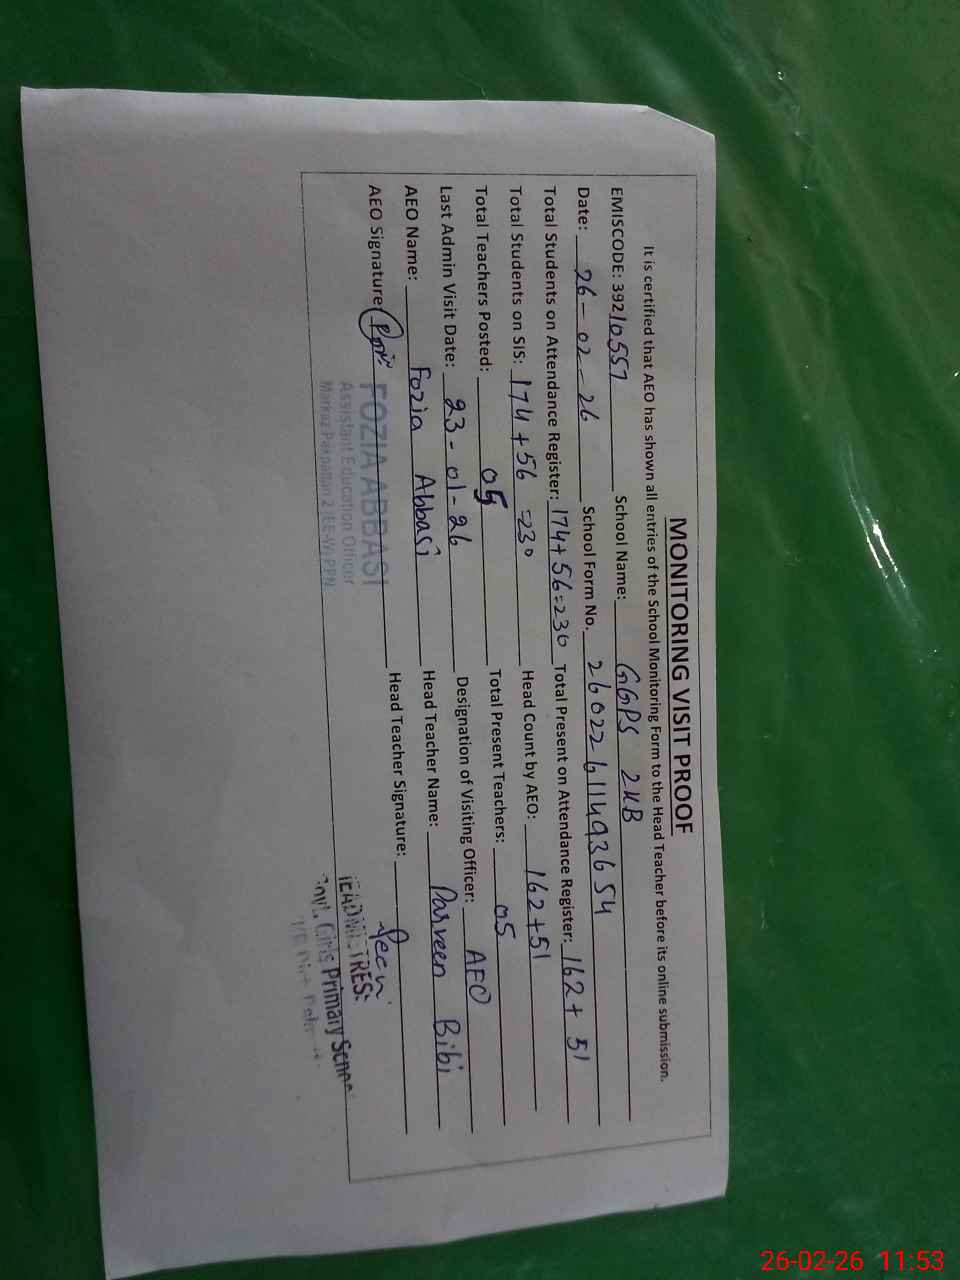 MONITORING VISIT PROOF
It is certified that AEO has shown all entries of the School Monitoring Form to the Head Teacher before its online submission.
EMISCODE: 39210557 School Name: GGPS 2KB
Date: 26-02-26 School Form No. 26022611493654
Total Students on Attendance Register: 174+56=230 Total Present on Attendance Register: 162+51
Total Students on SIS: 174+56=230 Head Count by AEO: 162+51
Total Teachers Posted: 05 Total Present Teachers: 05
Last Admin Visit Date: 23-01-26 Designation of Visiting Officer: AEO
AEO Name: Fozia Abbasi Head Teacher Name: Parveen Bibi
AEO Signature Head Teacher Signature:
FOZIA ABBASI
Assistant Education Officer
Markaz Pakpattan 2 (EE-W) PPN
Govt. Girls Primary
26-02-26 11:53